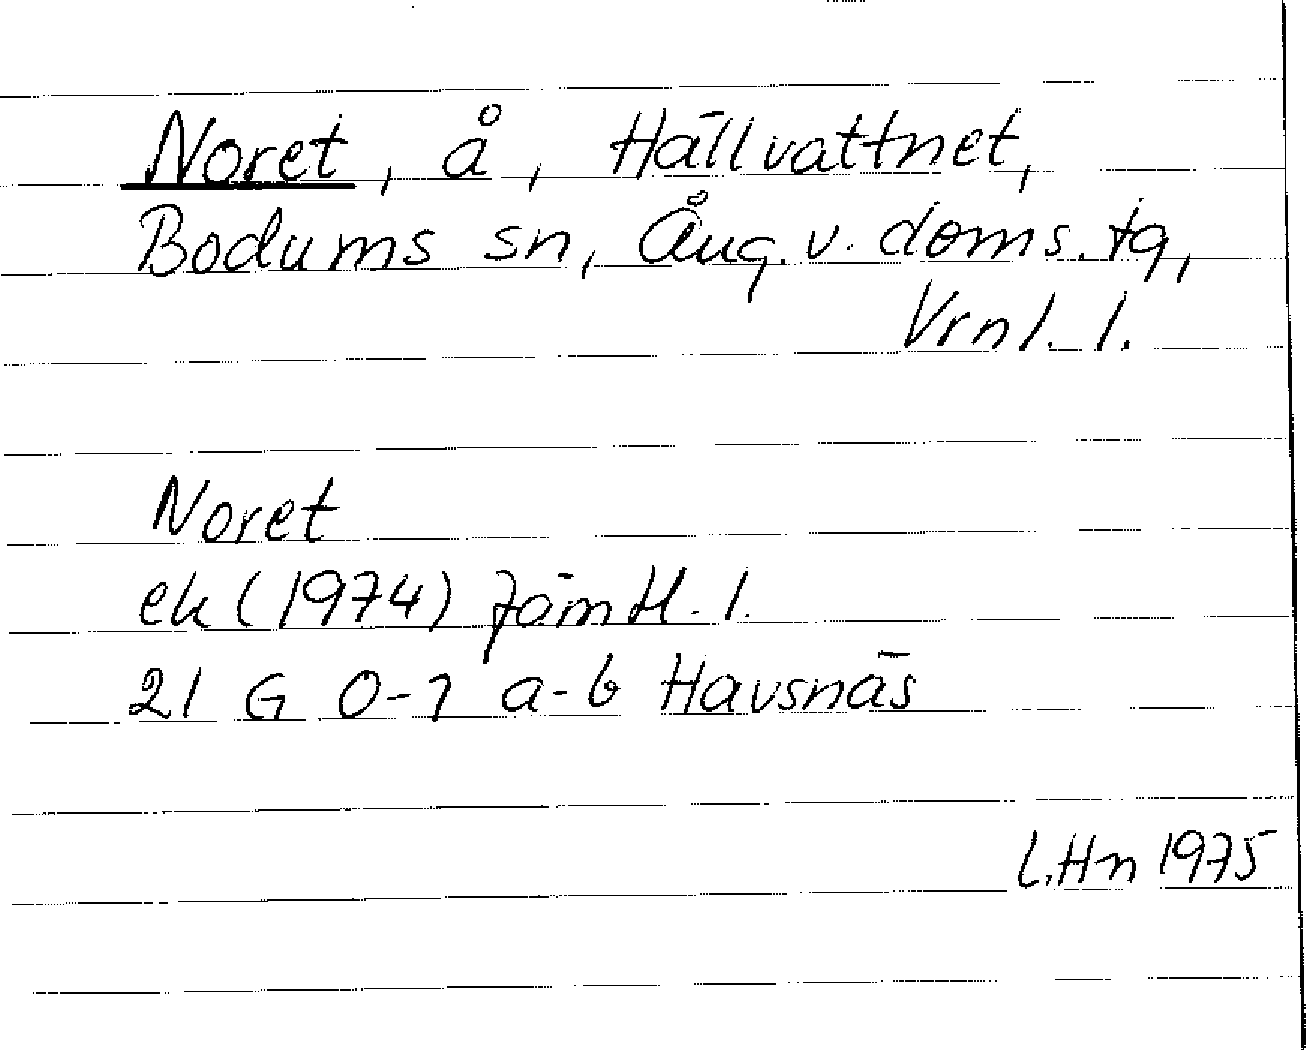 Noret, å, Hällvattnet,
Bodums sn, Ång. v. doms. tg,
Vrnl. l.
Noret
ek (1974) Jämtl. l.
21 G 0-1 a-b Havsnäs
L.Hn 1975